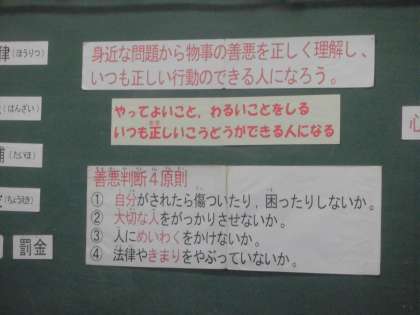 律(ほうりつ)
身近な問題から物事の善悪を正しく理解し、
いつも正しい行動のできる人になろう。
(はんざい)
やってよいこと、わるいことをしる
いつも正しいこうどうができる人になる
心
捕(たいほ)
善悪判断4原則
① 自分がされたら傷ついたり、困ったりしないか。
② 大切な人をがっかりさせないか。
③ 人にめいわくをかけないか。
④ 法律やきまりをやぶっていないか。
(ちょうえき)
罰金